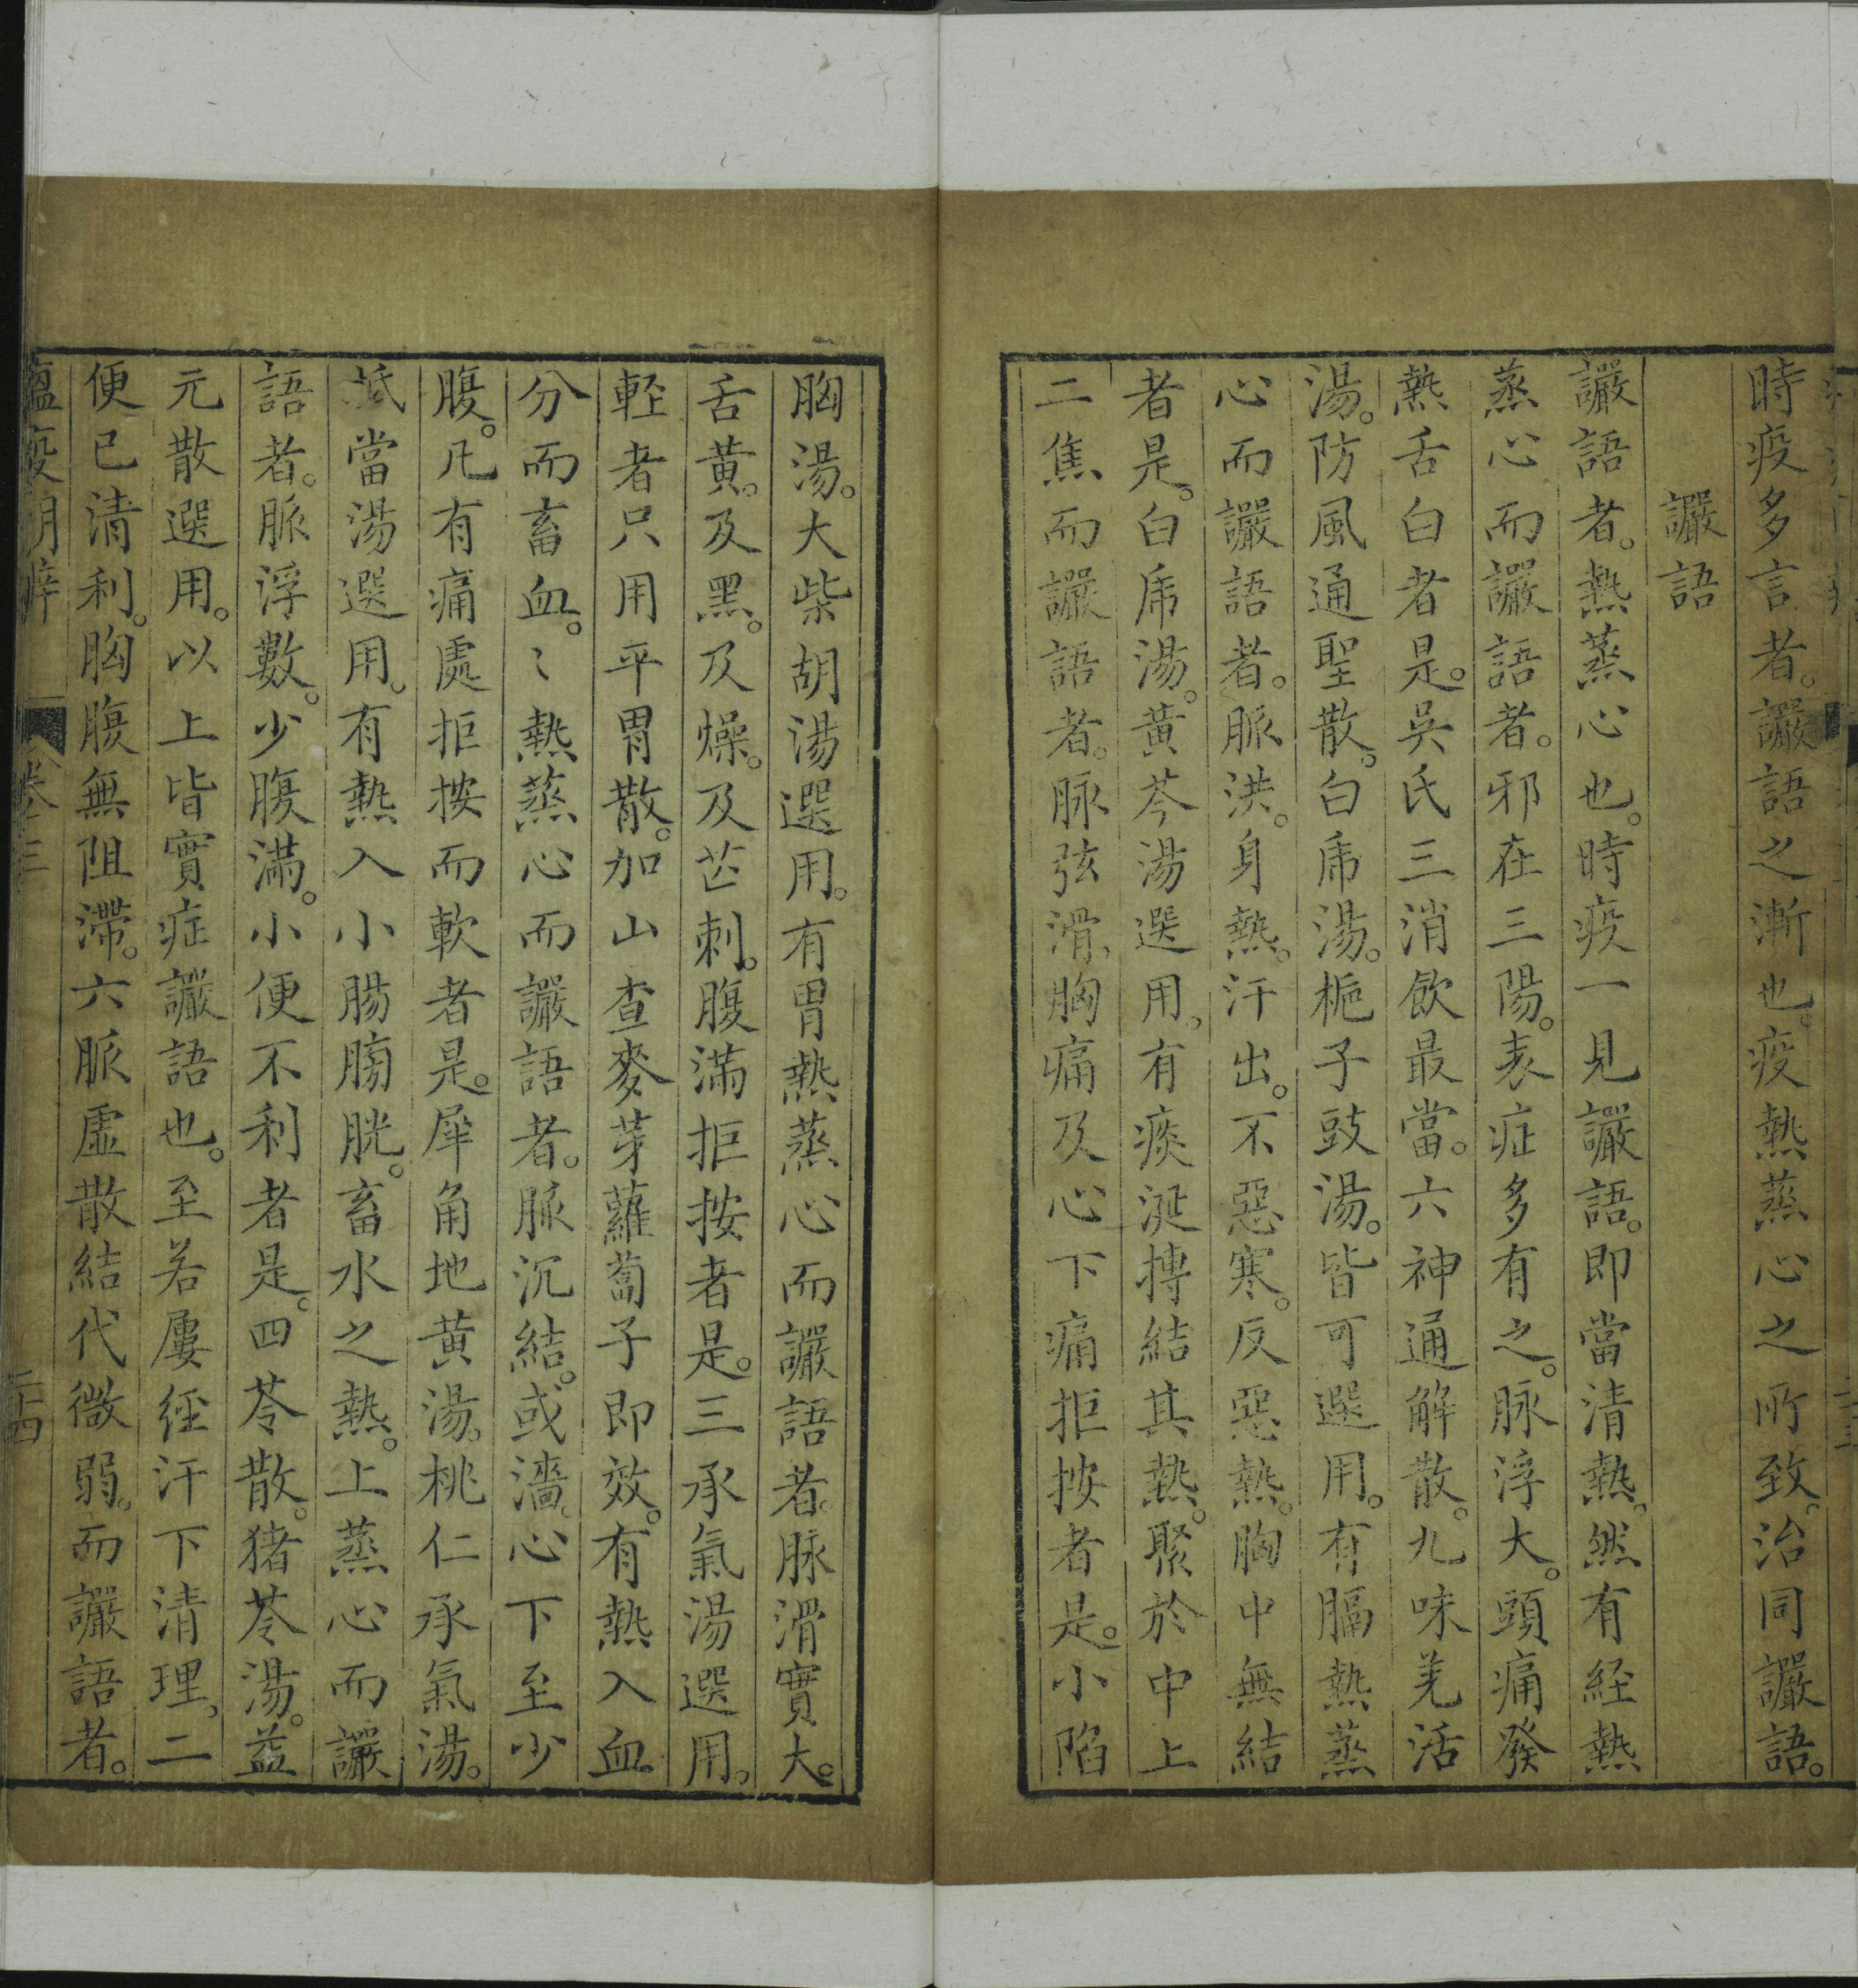 時疫多言者。讝語之漸也。疫熱蒸心之所致。治同讝語。
讝語
讝語者。熱蒸心也。時疫一見讝語。即當清熱。然有經熱
蒸心而讝語者。邪在三陽。表症多有之。脉浮大。頭痛發
熱舌白者是。吳氏三消飲最當。六神通解散。九味羌活
湯。防風通聖散。白虎湯。梔子豉湯。皆可選用。有膈熱蒸
心而讝語者。脈洪。身熱。汗出。不惡寒。反惡熱。胸中無結
者是。白虎湯。黃芩湯選用。有痰涎摶結其熱。聚於中上
二焦而讝語者。脉弦滑。胸痛及心下痛拒按者是。小陷
胸湯。大柴胡湯選用。有胃熱蒸心而讝語者。脉滑實大。
舌黃。及黑。及燥。及芒刺。腹滿拒按者是。三承氣湯選用。
輕者只用平胃散。加山查麥芽蘿蔔子即效。有熱入血
分而畜血。〻熱蒸心而讝語者。脈沉結。或濇。心下至少
腹。凡有痛處拒按而軟者是。犀角地黃湯。桃仁承氣湯。
抵當湯選用。有熱入小腸膀胱。畜水之熱。上蒸心而讝
語者。脈浮數。少腹滿。小便不利者是。四苓散。猪苓湯。益
元散選用。以上皆實症讝語也。至若屢經汗下清理、二
便已清利。胸腹無阻滯。六脈虛散結代微弱。而讝語者。
瘟疫明辨 卷三 二十四